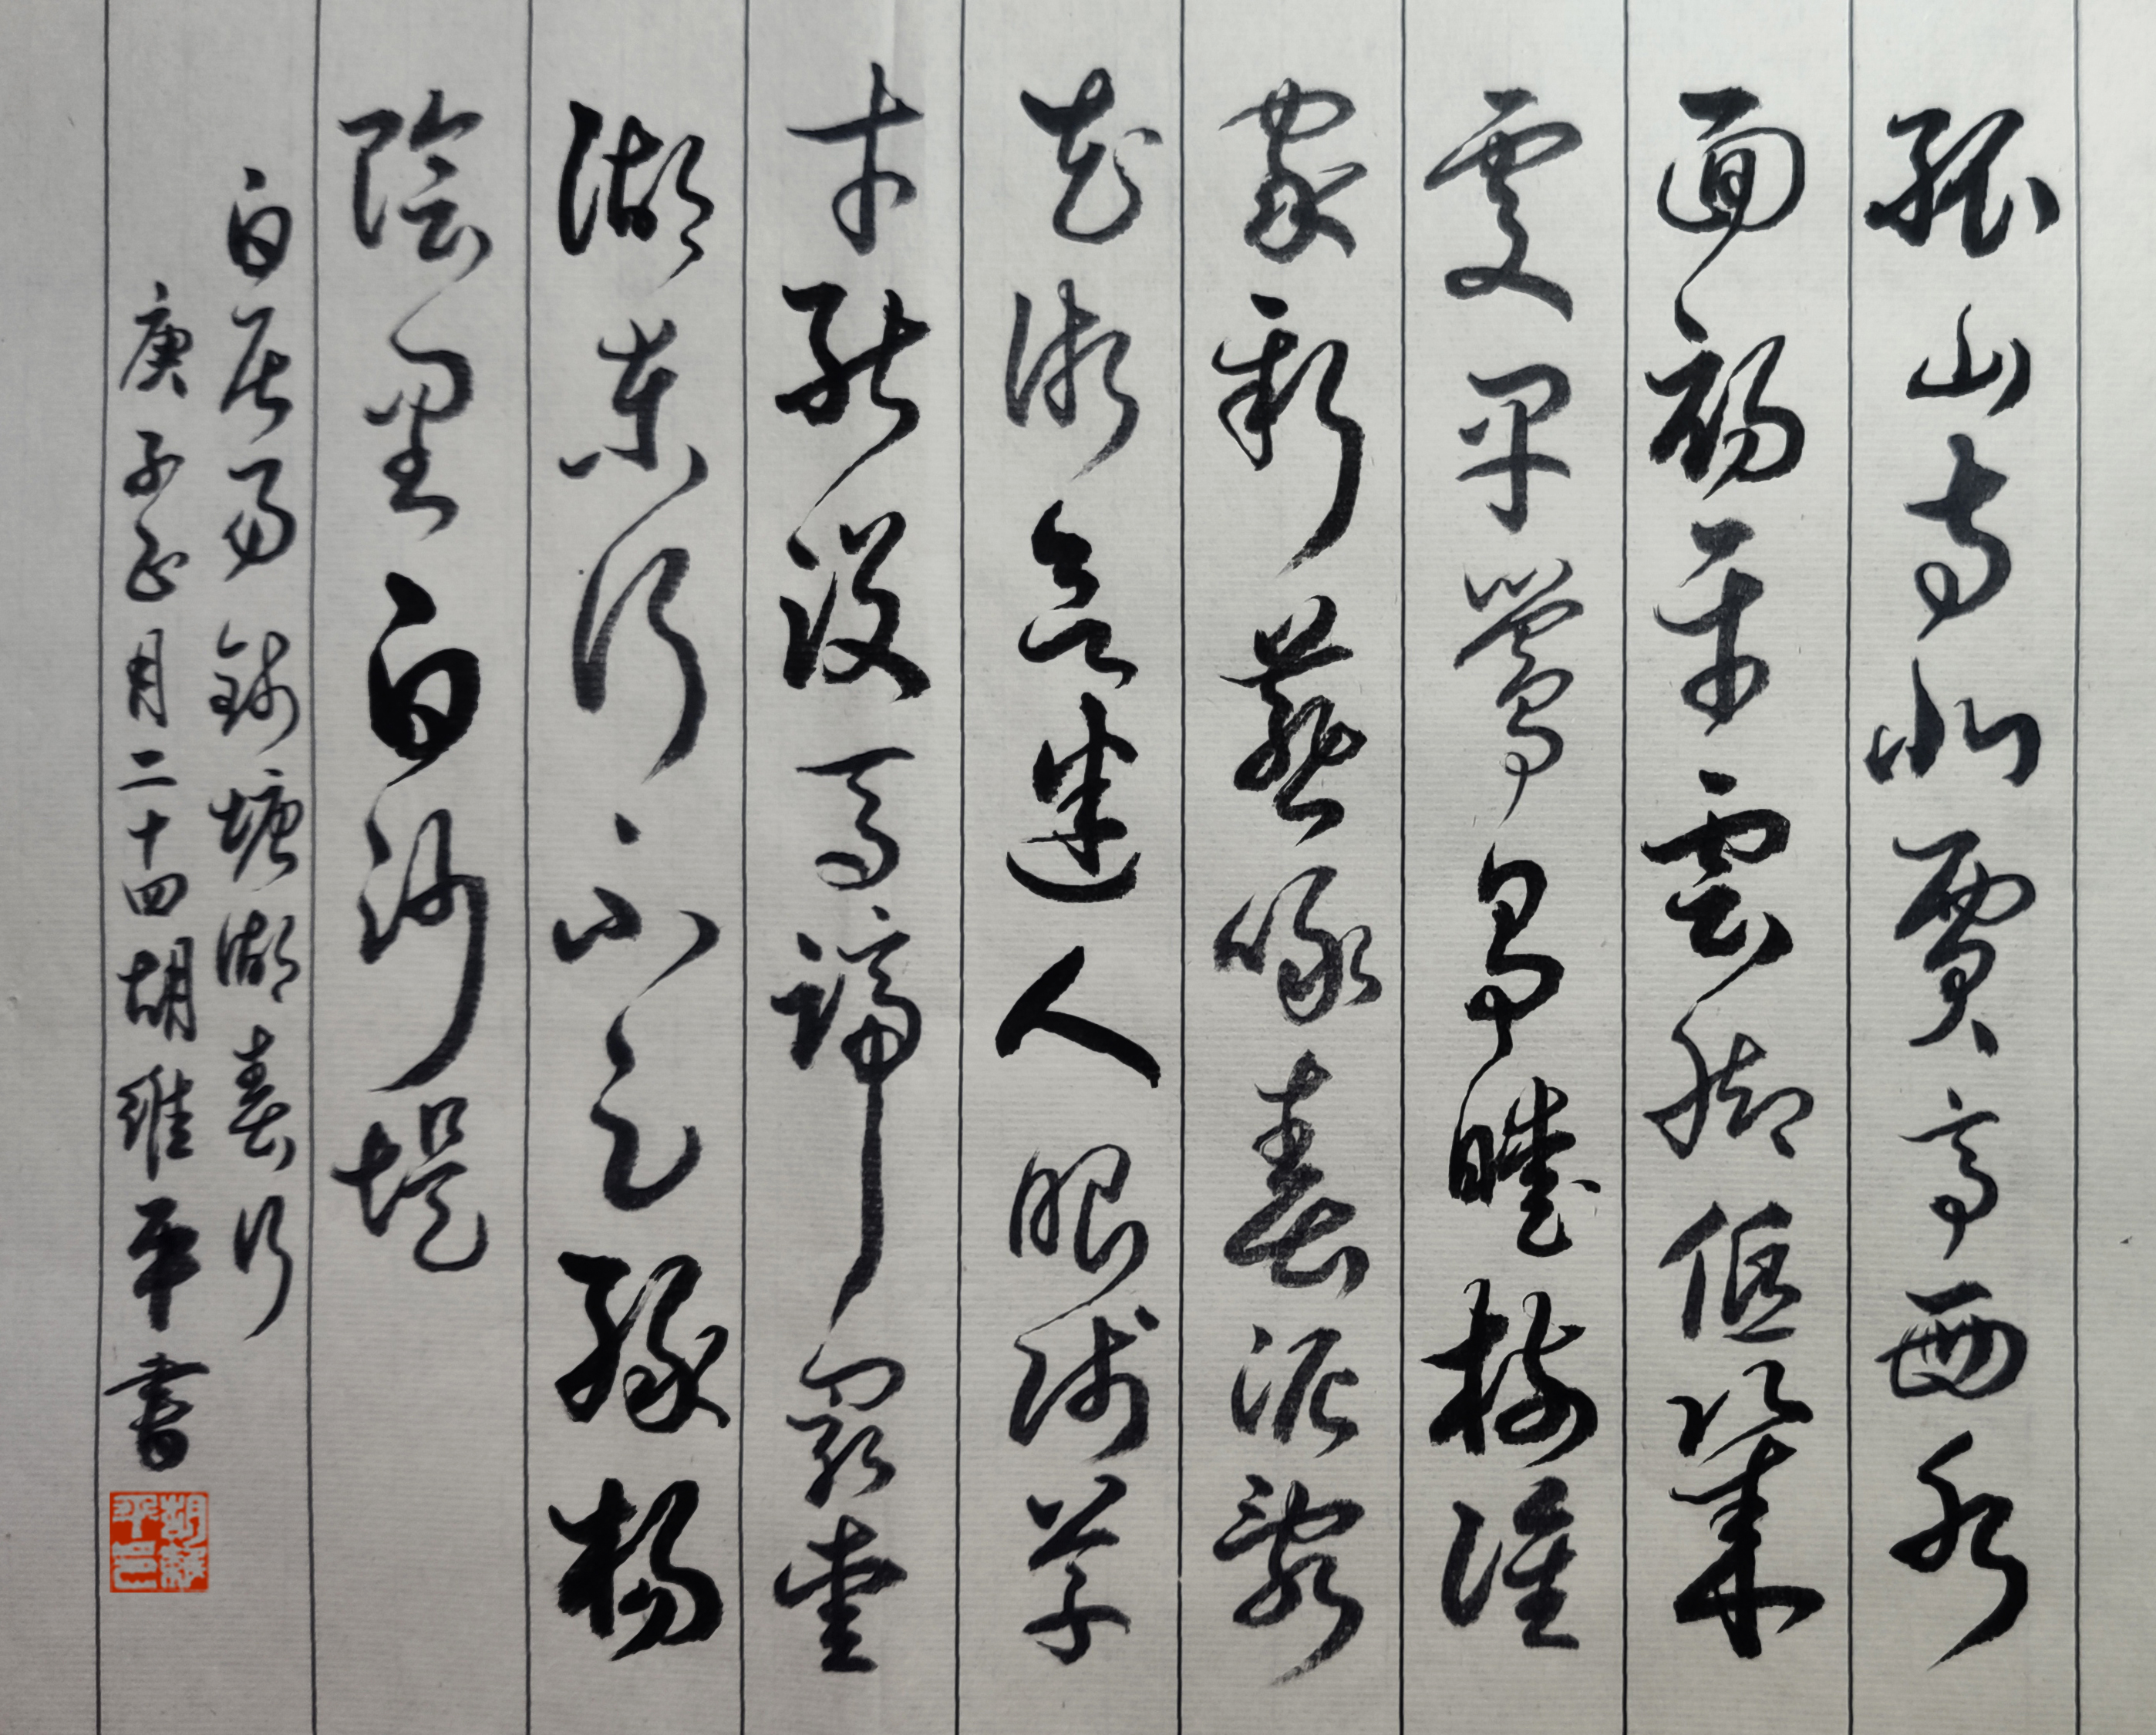 孤山寺北賈亭西水
面初平雲腳低幾
處早鶯爭暖樹誰
家新燕啄春泥亂
花漸欲迷人眼淺草
才能没馬蹄最愛
湖東行不足綠楊
陰里白沙堤
白居易錢塘湖春行
庚子正月二十四胡維平書
胡維平印